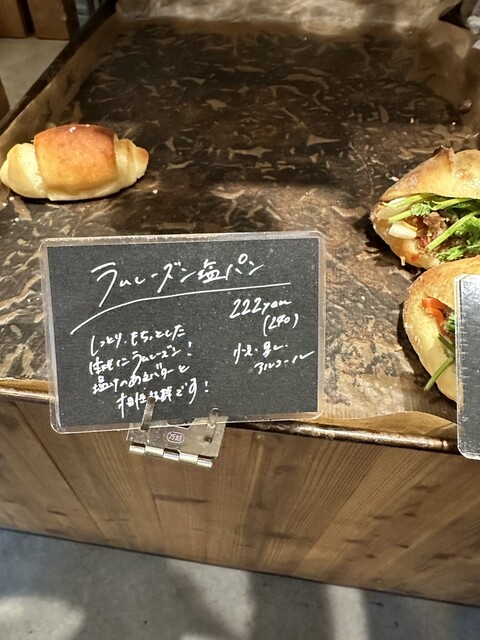 ラムレーズン塩パン
222yen
(240)
しっとり、もちっとした
生地にラムレーズン!
塩けのあるバターと
相性抜群です!
小麦・乳・
アルコール